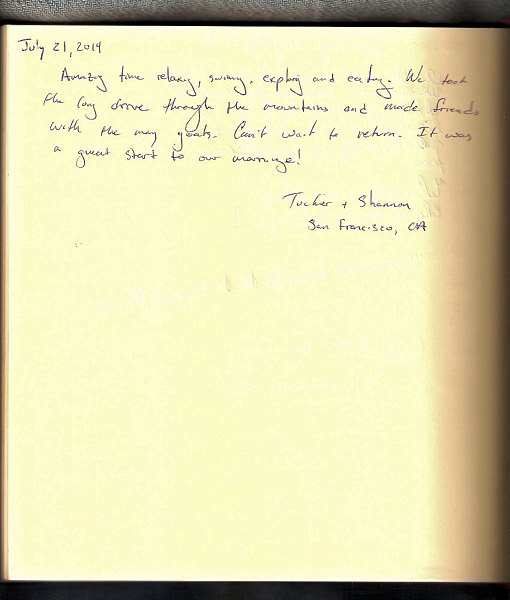 July 21, 2014
Amazing time relaxing, swimming, exploring and eating. We took
the long drive through the mountains and made friends
with the many goats. Can't wait to return. It was
a great start to our marriage!
Tucker + Shannon
San Francisco, CA